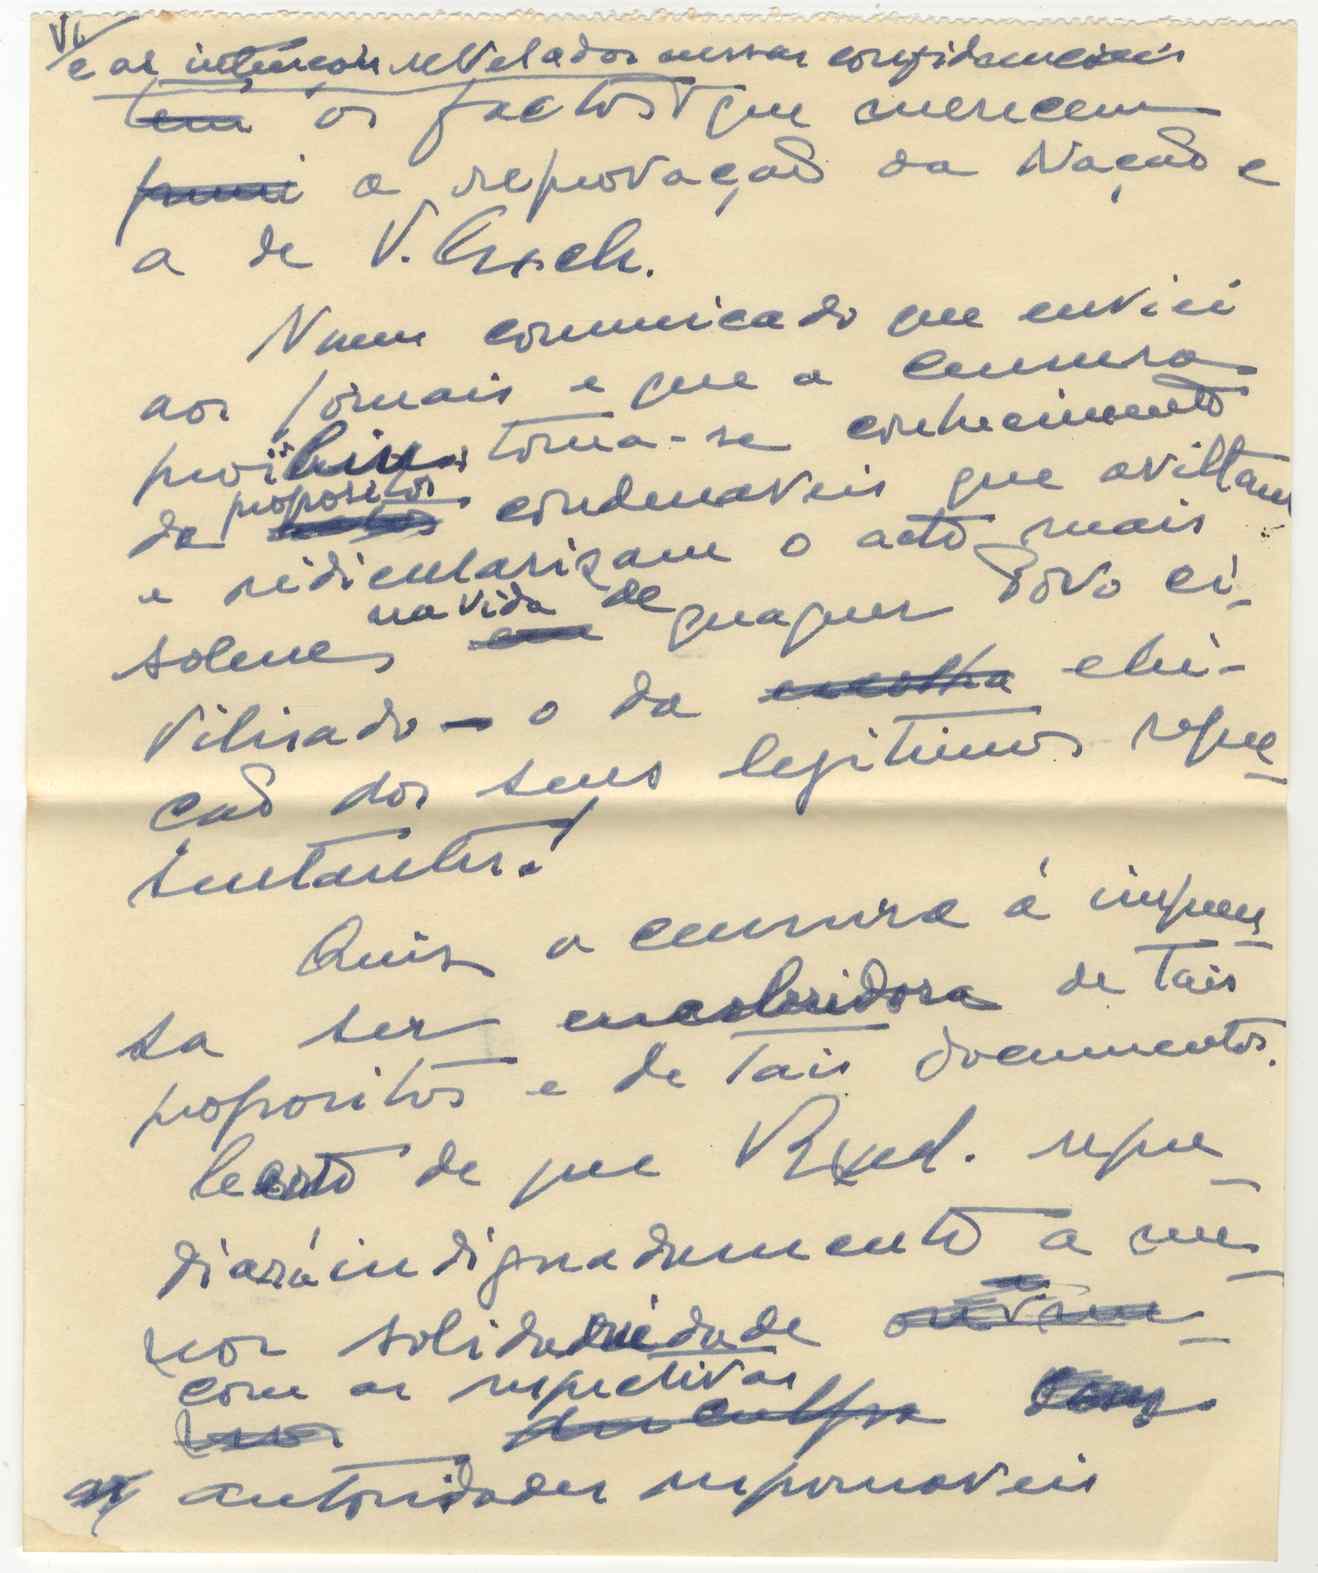 VI
e as intenções reveladas nessas confidenciais
tem os factos que merecem
puni a reprovação da Nação e
a de V. Excia.
Num comunicado que enviei
aos jornais e que a censura
proíbiu, torna-se conhecimento
de propositos condenaveis que aviltam
e ridicularizam o acto mais
solene, na vida de em quaquer Povo ci-
vilisado - o da escolha elei-
ção dos seus legitimos repre-
sentantes!
Quis a censura á impren-
sa ser encobridora de tais
propositos e de tais documentos.
Certo de que V. Excia. repu-
diará indignadamente a me-
nor solidariedade
com as respectivas
desculpa
as autoridades responsaveis